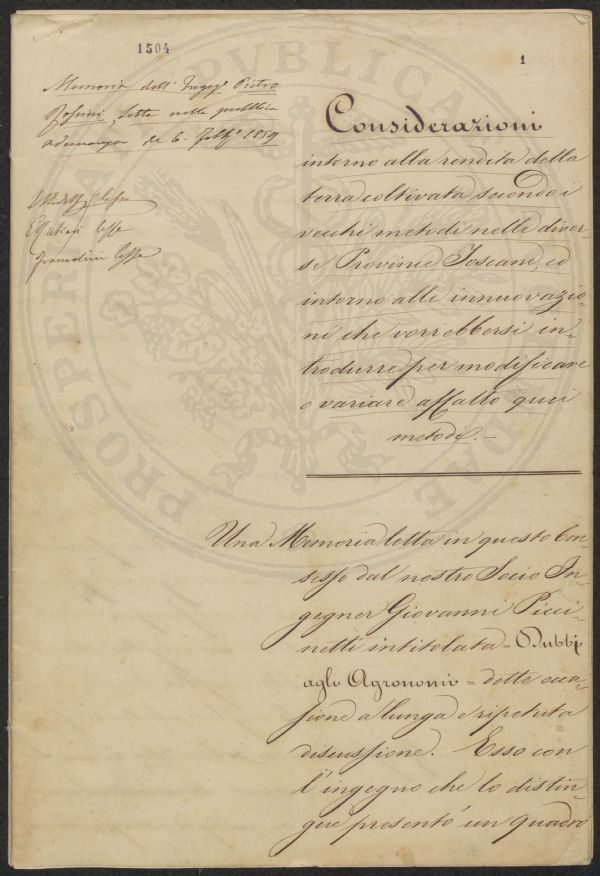 1504
1
Memoria dell' Ingeg.e Pietro
Rossini letta nella pubblica
adunanza de 6. Febb.o 1859
Considerazioni
intorno alla rendita della
terra coltivata secondo i
vecchi metodi nelle diver-
se Provincie Toscane, ed
intorno alle innuovazio-
ni che vorrebbersi in-
trodurre per modificare
o variare affatto quei
metodi. —
Una Memoria letta in questo Con-
sesso dal nostro Socio In-
gegner Giovanni Picci-
netti intitolata = Dubbj
agli Agronomi = dette oca-
sione a lunga e ripetuta
discussione. Esso con
l'ingegno che lo distin-
gue presentò un quadro
PROSPERITATI PUBLICAE AUGENDAE